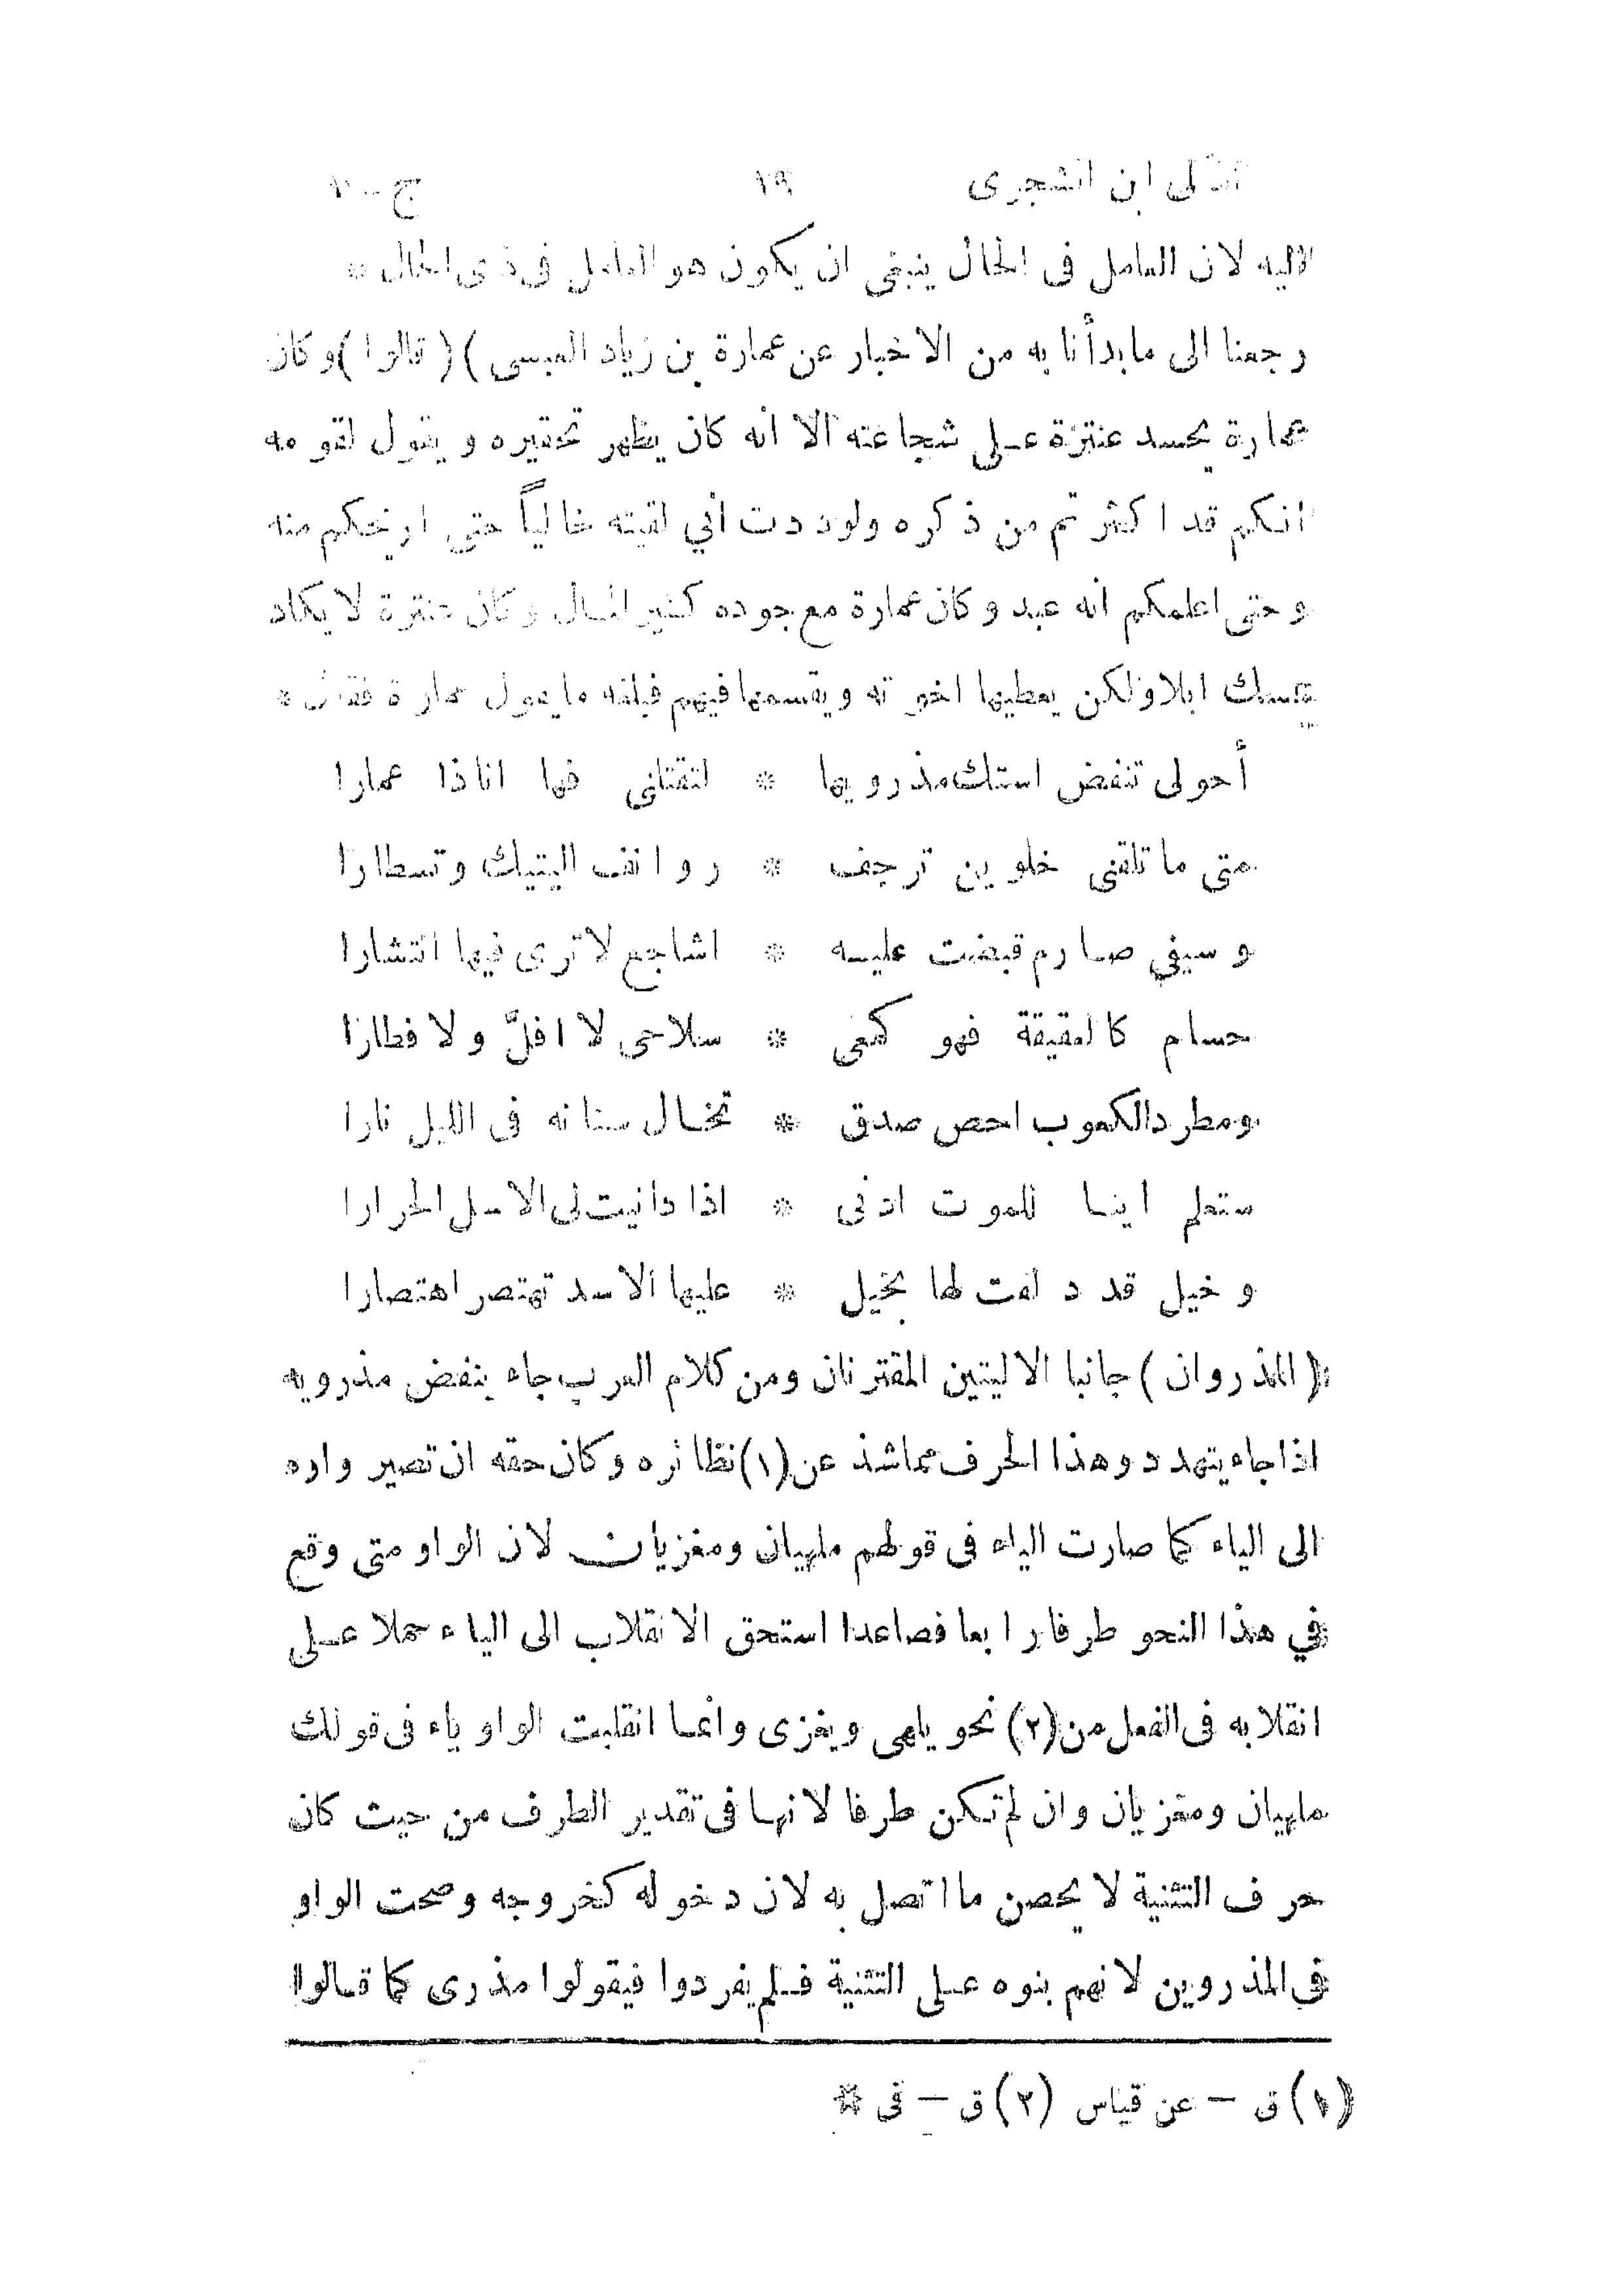 امالى ابن الشجرى ١٩ ج - ١
اليه لان العامل فى الحال ينبغى ان يكون هو العامل فى ذى الحال *
رجعنا الى ما بدأنا به من الاخبار عن عمارة بن زياد العبسى ) ( قالوا ) وكان
عمارة يحسد عنترة على شجاعته الا انه كان يظهر تحقيره ويقول لقومه
انكم قد اكثرتم من ذكره ولوددت أني لقيته خالياً حتى اريحكم منه
وحتى اعلمكم انه عبد وكان عمارة مع جوده كثير المال وكان عنترة لا يكاد
يمسك ابلا ولكن يعطيها اخوته ويقسمها فيهم فبلغه ما يقول عمارة فقال *
أحولى تنفض استك مذرويها * لتقتلنى فها انا ذا عمارا
متى ما تلقنى خلوين ترجف * روانف اليتيك وتسطارا
وسيفي صارم قبضت عليه * اشاجع لا ترى فيها انتشارا
حسام كالعقيقة فهو كمعى * سلاحى لا افلّ ولا فطارا
ومطرد الكعوب احص صدق * تخال سنانه فى الليل نارا
ستعلم اينا للموت ادنى * اذا دانيت لى الاسل الحرارا
وخيل قد دلفت لها بخيل * عليها الاسد تهتصر اهتصارا
( المذروان ) جانبا الاليتين المقترنان ومن كلام العرب جاء ينفض مذرويه
اذا جاء يتهدد وهذا الحرف مما شذ عن (١) نظائره وكان حقه ان تصير واوه
الى الياء كما صارت الياء فى قولهم ملهيان ومغزيان لان الواو متى وقع
في هذا النحو طرفا رابعا فصاعدا استحق الانقلاب الى الياء حملا على
انقلابه فى الفعل من (٢) نحو يلهى ويغزى وانما انقلبت الواو ياء فى قولك
ملهيان ومغزيان وان لم تكن طرفا لانها فى تقدير الطرف من حيث كان
حرف التثنية لا يحصن ما اتصل به لان دخوله كخروجه وصحت الواو
فى المذروين لانهم بنوه على التثنية فلم يفردوا فيقولوا مذرى كما قالوا
(١) ق – عن قياس (٢) ق – فى *